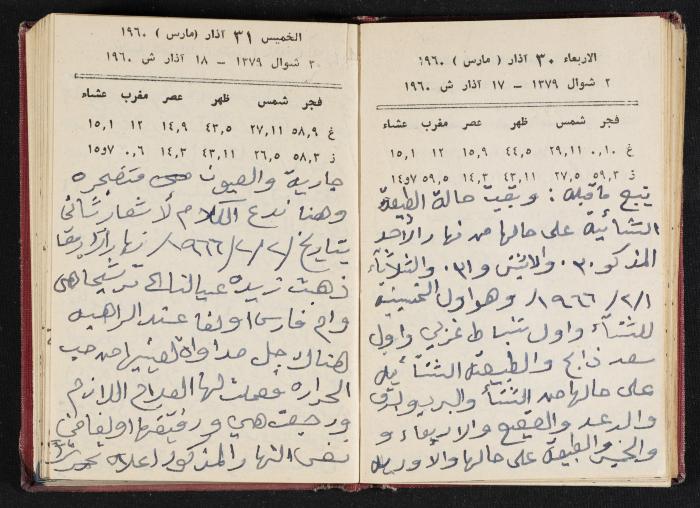 الاربعاء ٣٠ آذار ( مارس ) ١٩٦٠
٢ شوال ١٣٧٩ – ١٧ آذار ش ١٩٦٠
فجر شمس ظهر عصر مغرب عشاء
غ ١٠,٠ ٢٩,١١ ٤٤,٥ ١٥,٩ ١٢ ١٥,١
ز ٥٩,٣ ٢٧,٥ ٤٣,١١ ١٤,٣ ٥٩,٥ ٧و١٤
يتبع ماقبله : وبقيت حالة الطبيعة
الشتائية على حالها من نهار الأحد
المذكور ٣٠ والاثنين و٣١ والثلاثاء
١/٢/١٩٦٦ وهو اول الخمسينية
للشتاء واول شباط غربي واول
سعد ذابح والطبيعة الشتائية
على حالها من الشتاء والبرد والبرق
والرعد والصقيع والاربعاء و
والخميس والطبيعة على حالها والاوديه
الخميس ٣١ آذار (مارس ) ١٩٦٠
٣ شوال ١٣٧٩ – ١٨ آذار ش ١٩٦٠
فجر شمس ظهر عصر مغرب عشاء
غ ٥٨,٩ ٢٧,١١ ٤٣,٥ ١٤,٩ ١٢ ١٥,١
ز ٥٨,٣ ٢٦,٥ ٤٣,١١ ١٤,٣ ٠,٦ ٧و١٥
جارية والعيون متفجره
وهنا ندع الكلام لأشعار ثاني
بتاريخ ٢/٢/١٩٦٦ نهار
ذهبت زيده عيالنا الى ترشيحا هي
وام فارس اولغا عند الراهبه
هناك لجل مداواة لعينيها من حب
الحراره فعملت لها العلاج اللازم
ورجعت هي ورفيقتها اولغا في
نفس النهار المذكور اعلاه